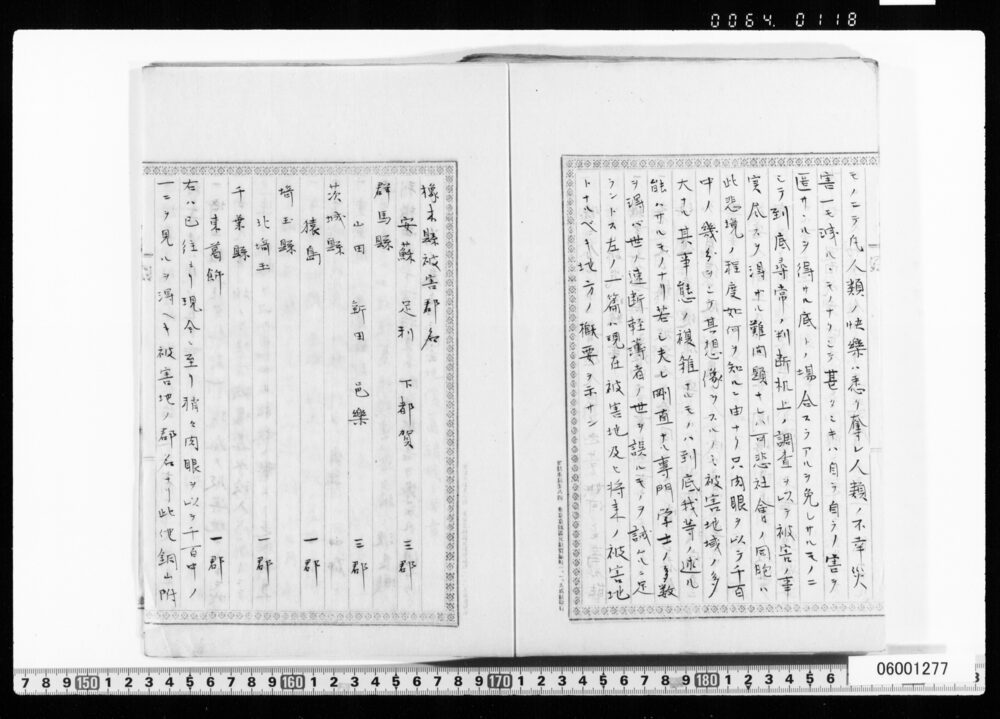 0064 0118
モノニテ凡人類ノ快樂ハ悉ク奪レ人類ノ不幸災
害一モ減ルヽモノナクシテ甚タシキハ自ラ自ラノ害ヲ
匿サヽルヲ得サル底トノ場合スラアルヲ免レサルモノニ
シテ到底尋常ノ判断机上ノ調査ヲ以テ被害ノ事
実尽スヲ得サル難問題ナレハ可悲社會ノ同胞ハ
此悲境ノ程度如何ヲ知ルニ由ナク只肉眼ヲ以テ千百
中ノ幾分ヲシテ其想像ヲスルノミ被害地域ノ多
大ナル其事態ノ複雑ナルモノハ到底我等ノ述ル
能ハサルモノナリ若シ夫レ剛直ナル専門学士ノ多数
ヲ得バ世ノ速断軽薄者ノ世ヲ誤ルモノヲ誡ムルニ足
ラントス左ノ一篇ハ現在被害地及ヒ将来ノ被害地
トナルベキ地方ノ概要ヲ示サン
橡木縣被害郡名
安蘇 足利 下都賀 三郡
群馬縣
山田 新田 邑樂 三郡
茨城縣
猿島 一郡
埼玉縣
北埼玉 一郡
千葉縣
東葛飾 一郡
右ハ已往ヨリ現今ニ至リ稍々肉眼ヲ以テ千百中ノ
一ニヲ見ルヲ得ヘキ被害地ノ郡名ナリ此他銅山附
7 8 9 150 1 2 3 4 5 6 7 8 9 160 1 2 3 4 5 6 7 8 9 170 1 2 3 4 5 6 7 8 9 180 1 2 3 4 5 6
06001277